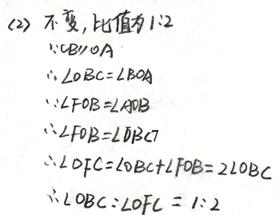 (2) 不变,比值为1:2
∵CB∥OA
∴∠OBC=∠BOA
∵∠FOB=∠AOB
∴∠FOB=∠OBC
∴∠OFC=∠OBC+∠FOB=2∠OBC
∴∠OBC:∠OFC=1:2